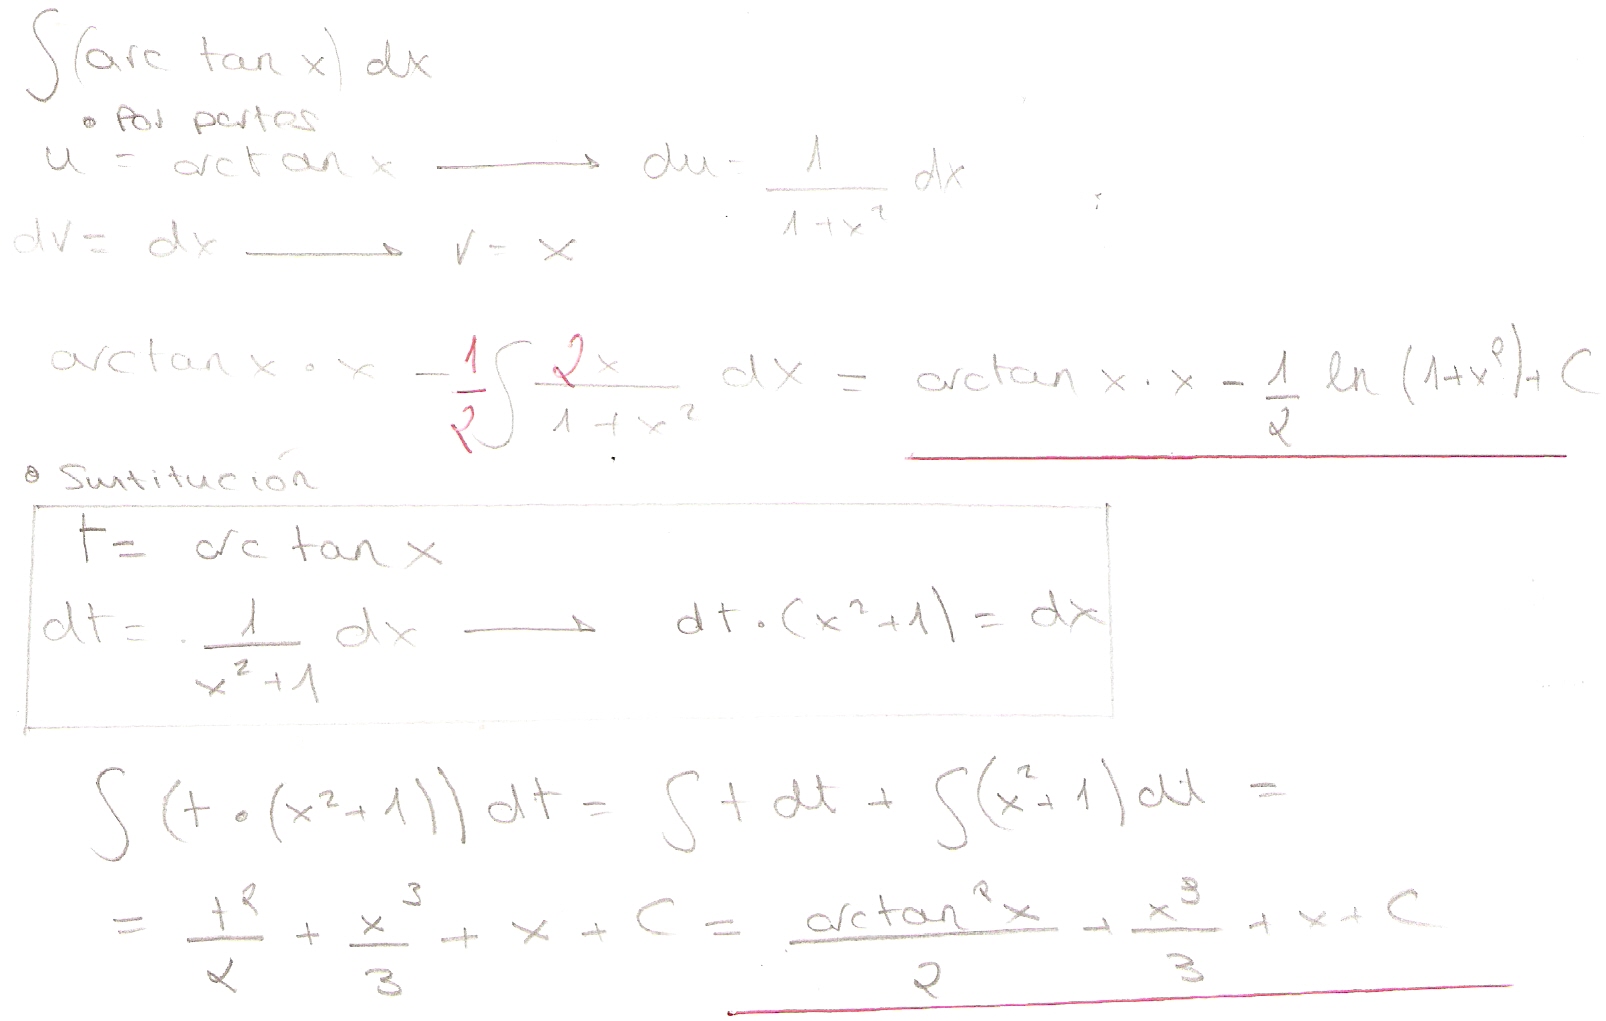 ∫(arc tan x) dx
• Por partes
u = arctan x ⟶ du = 1/(1+x²) dx
dv = dx ⟶ v = x
arctan x · x - 1/2 ∫ 2x/(1+x²) dx = arctan x · x - 1/2 ln (1+x²) + C
• Sustitución
t = arc tan x
dt = 1/(x²+1) dx ⟶ dt · (x²+1) = dx
∫ (t · (x²+1)) dt = ∫ t dt + ∫(x²+1) dt =
= t²/2 + x³/3 + x + C = arctan²x/2 + x³/3 + x + C